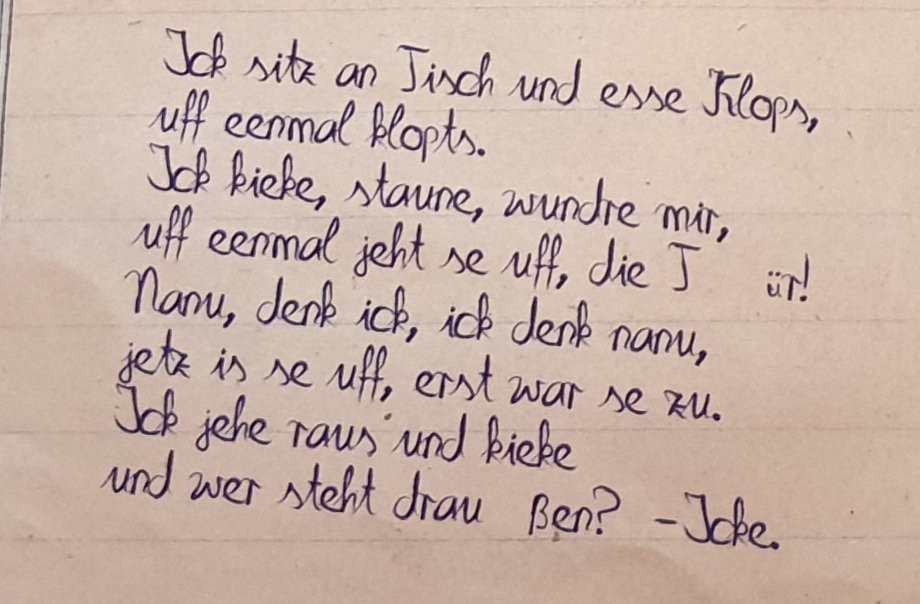 Ick sitz an Tisch und esse Klops,
uff eenmal klopts.
Ick kieke, staune, wundre mir,
uff eenmal jeht se uff, die T ür!
Nanu, denk ick, ick denk nanu,
jetz is se uff, erst war se zu.
Ick jehe raus und kieke
und wer steht drau ßen? - Icke.